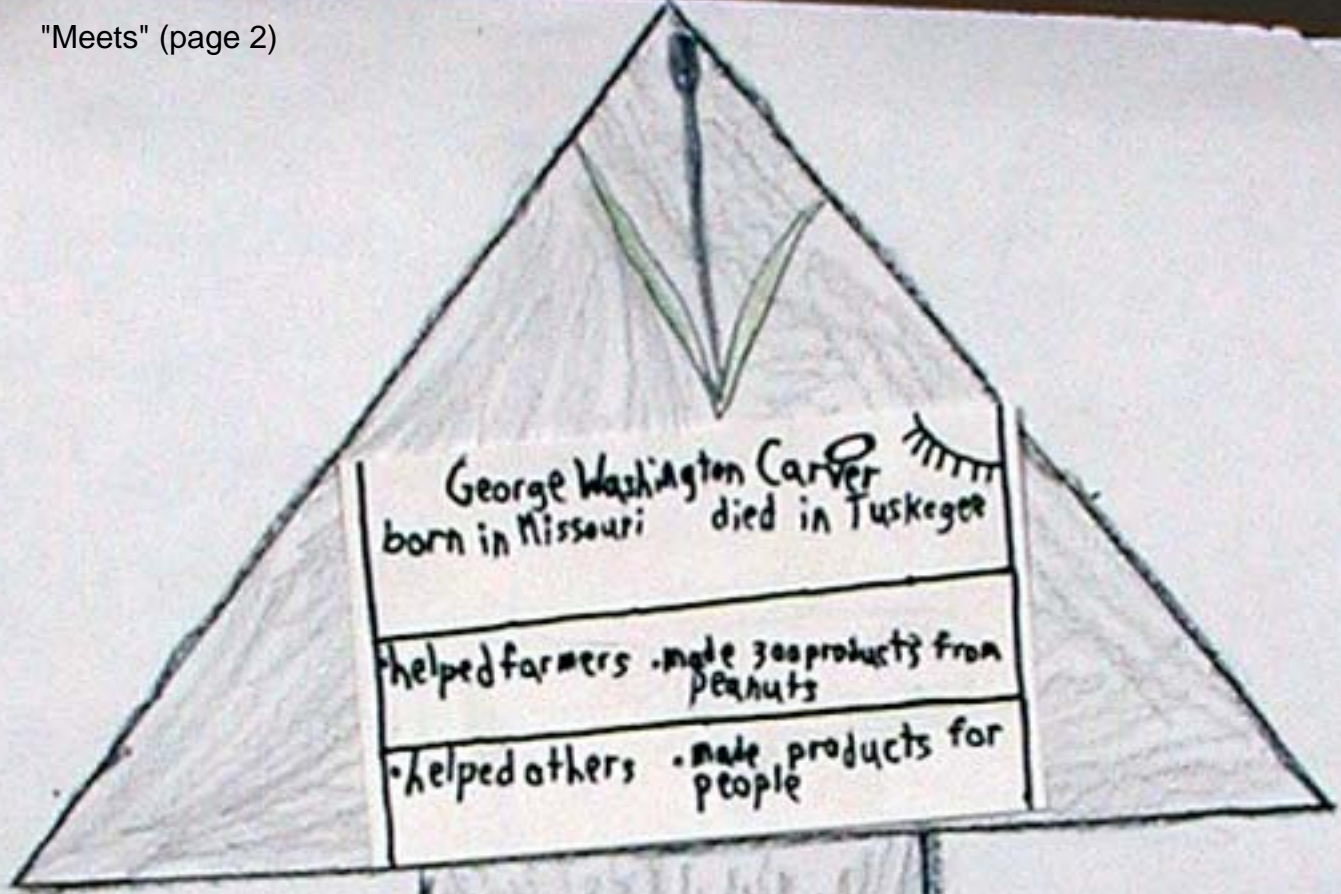 "Meets" (page 2)
George Washington Carver
born in Missouri died in Tuskegee
•helped farmers •made 300 products from
peanuts
•helped others •made products for
people